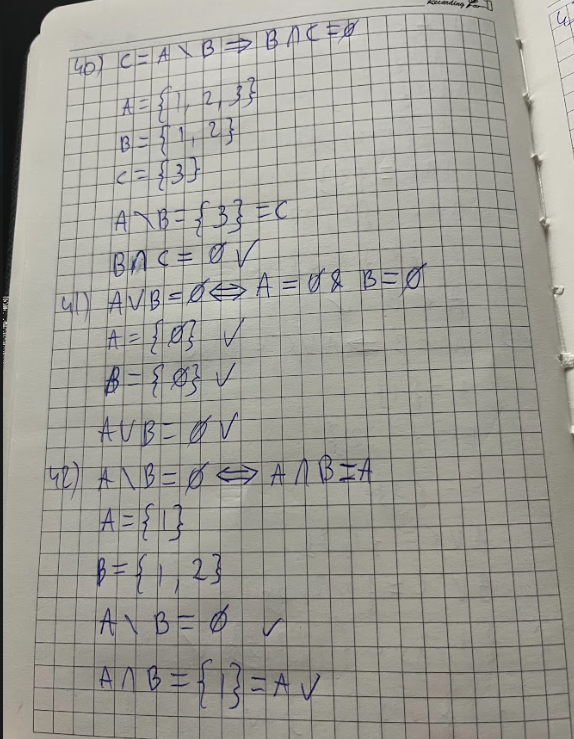 Recording
40) C = A \ B ⇒ B ∩ C = ∅
A = {1, 2, 3}
B = {1, 2}
C = {3}
A \ B = {3} = C
B ∩ C = ∅ ✓
41) A ∪ B = ∅ ⇔ A = ∅ & B = ∅
A = {∅} ✓
B = {∅} ✓
A ∪ B = ∅ ✓
42) A \ B = ∅ ⇔ A ∩ B = A
A = {1}
B = {1, 2}
A \ B = ∅ ✓
A ∩ B = {1} = A ✓